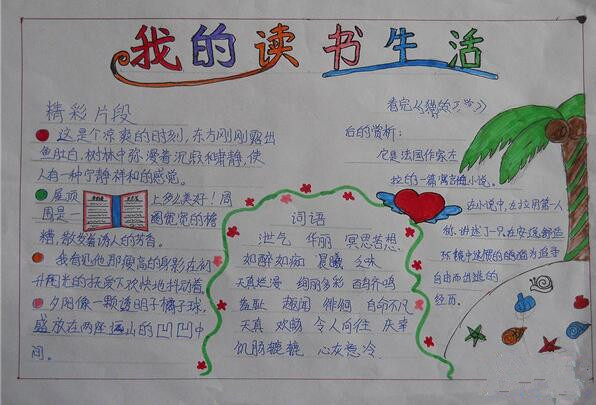 我的读书生活
精彩片段
这是个凉爽的时刻,东方刚刚露出
鱼肚白,树林中弥漫着沉寂和肃静,使
人有一种宁静祥和的感觉。
屋顶上多么美好!周
围是一圈宽宽的
糖,散发着诱人的芳香。
我看见他那瘦高的身影在初
升阳光的扶受下欢快地抖动着
夕阳像一颗透明子橘子球,
盛放在两座远山的凹凹中
间。
词语
泄气 华丽 冥思苦想
如醉如痴 晨曦 乏味
天真烂漫 绚丽多彩 百鸟齐鸣
羞耻 趣闻 徘徊 自命不凡
天真 欢畅 令人向往 庆幸
饥肠辘辘 心灰意冷
看完《猫的大学》
后的赏析:
它是法国作家左
拉的一篇寓言性小说。
在小说中,左拉用第一人
称,讲述了一只在安逸舒适
环境中
的猫为追寻
自由而出逃的
经历。